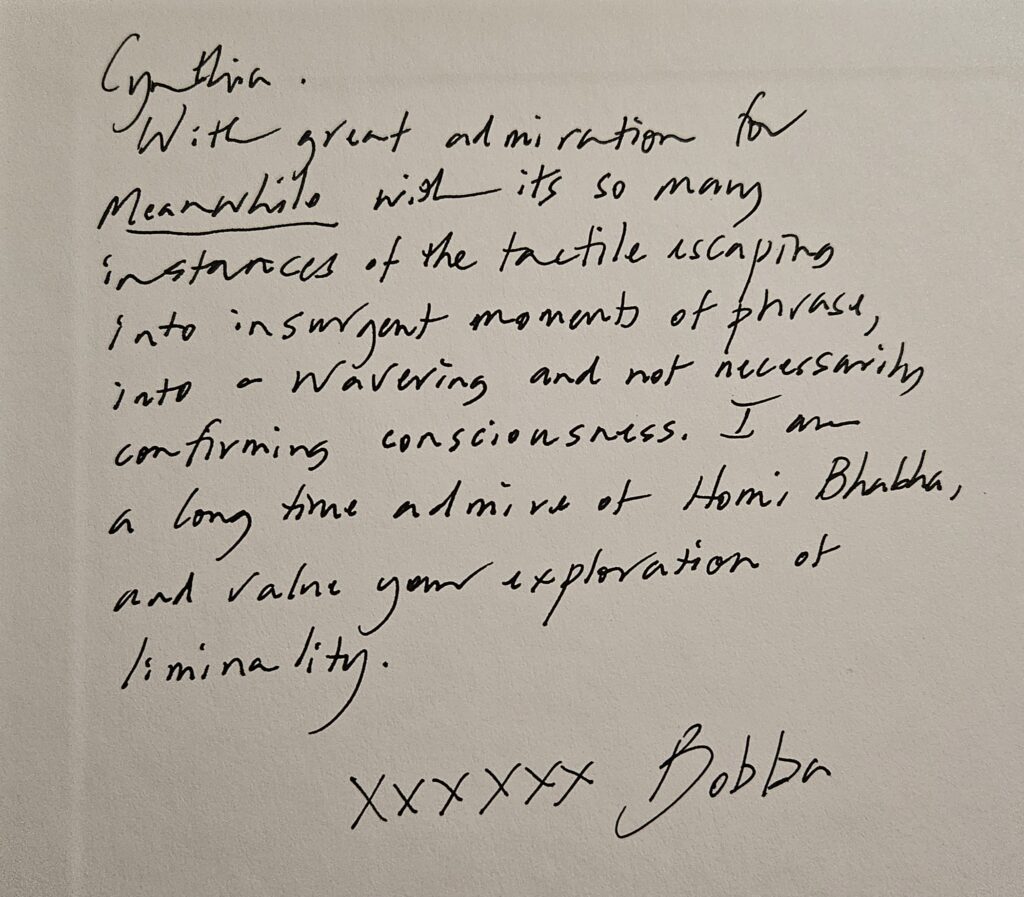 Cynthia.
With great admiration for
Meanwhile with its so many
instances of the tactile escaping
into insurgent moments of phrase,
into a wavering and not necessarily
confirming consciousness. I am
a long time admirer of Homi Bhabha,
and value your exploration of
liminality.
XXXXXX Bobba